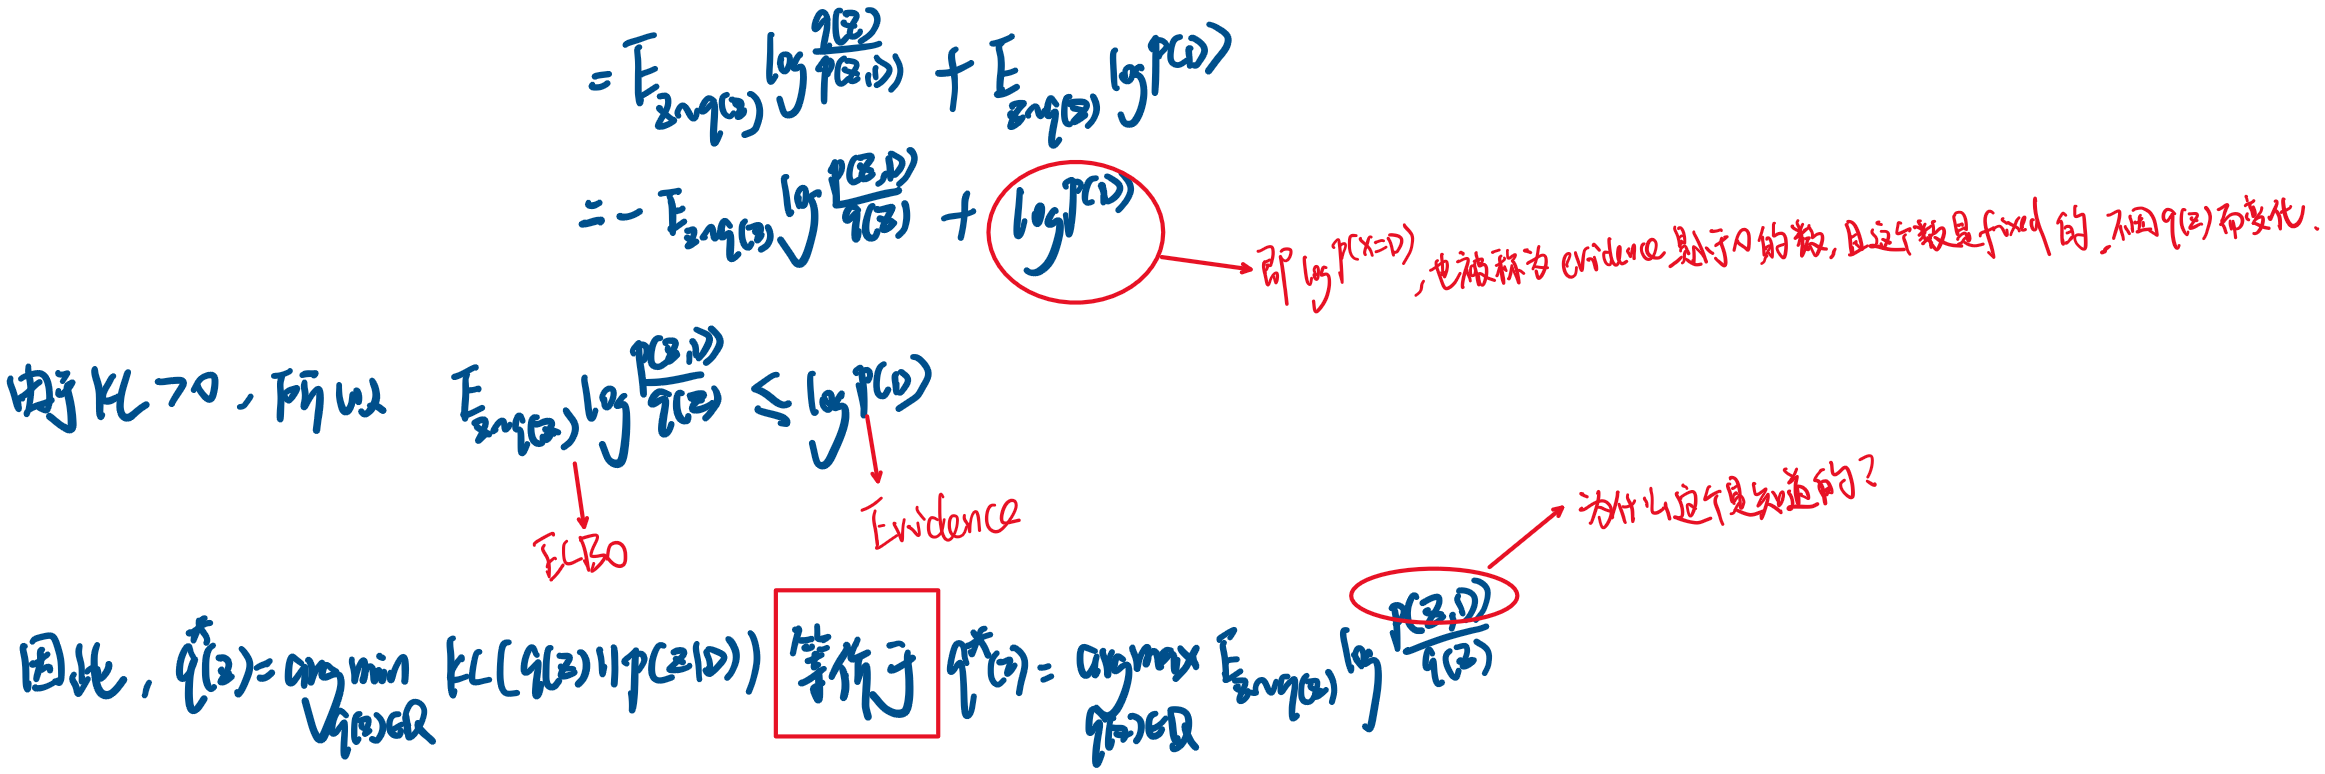 = E_{z~q(z)} log q(z)/p(z,D) + E_{z~q(z)} log p(D)
= - E_{z~q(z)} log p(z,D)/q(z) + log p(D)
即 log p(x=D), 也被称为 evidence 是小于0的数, 且这个数是 fixed 的, 不因 q(z) 而变化.
由于 KL >0, 所以 E_{z~q(z)} log p(z,D)/q(z) ≤ log p(D)
ELBO
Evidence
为什么这个是知道的?
因此, q*(z) = argmin_{q(z)∈Q} KL(q(z)||p(z|D)) 等价于 q*(z) = argmax_{q(z)∈Q} E_{z~q(z)} log p(z,D)/q(z)